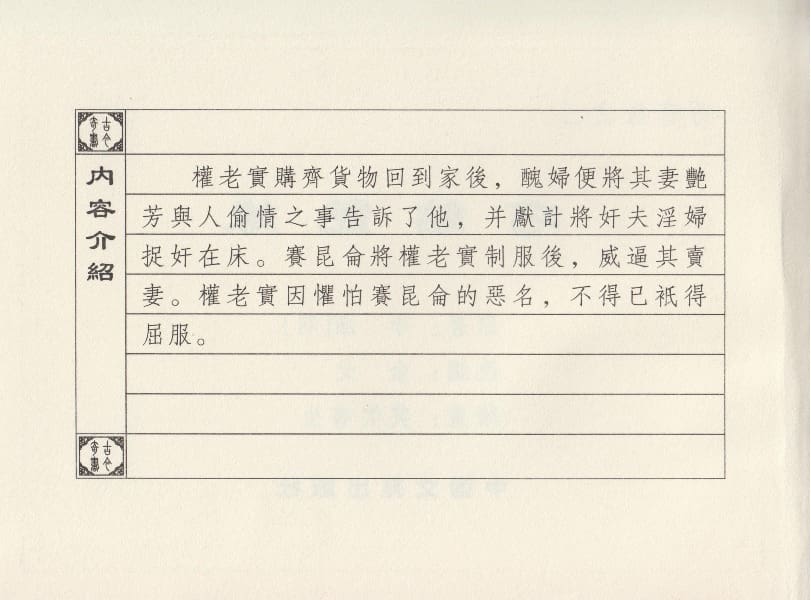 古今
奇書
内容介紹
權老實購齊貨物回到家後，醜婦便將其妻艷
芳與人偷情之事告訴了他，并獻計將奸夫淫婦
捉奸在床。賽昆侖將權老實制服後，威逼其賣
妻。權老實因懼怕賽昆侖的惡名，不得已衹得
屈服。
古今
奇書